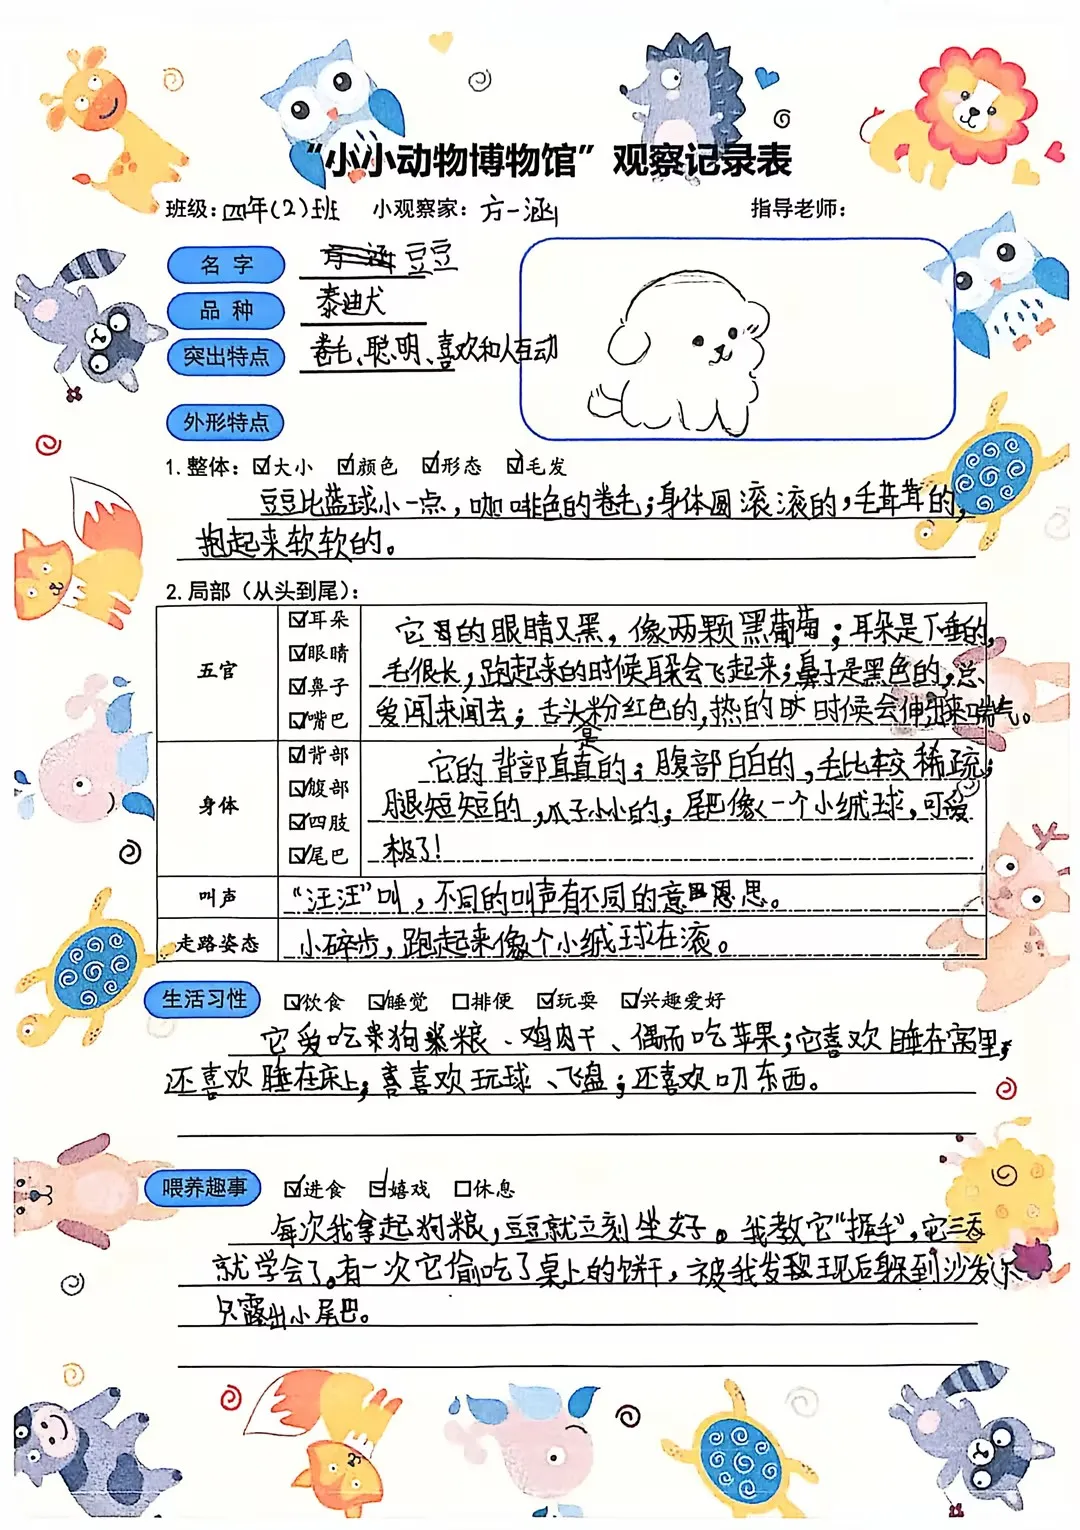 “小小动物博物馆”观察记录表
班级：四年(2)班 小观察家：方一涵 指导老师：
名字 豆豆
品种 泰迪犬
突出特点 卷毛、聪明、喜欢和人互动
外形特点
1.整体：☑大小 ☑颜色 ☑形态 ☑毛发
豆豆比蓝球小一点，咖啡色的卷毛；身体圆滚滚的，毛茸茸的，
抱起来软软的。
2.局部（从头到尾）：
五官
☑耳朵
☑眼睛
☑鼻子
☑嘴巴
它的眼睛又黑，像两颗黑葡萄；耳朵是下垂的，
毛很长，跑起来的时候耳朵会飞起来；鼻子是黑色的，总
爱闻来闻去；舌头是粉红色的，热的时候会伸出来喘气。
身体
☑背部
☑腹部
☑四肢
☑尾巴
它的背部直直的；腹部白白的，毛比较稀疏；
腿短短的，爪子小小的；尾巴像一个小绒球，可爱
极了！
叫声 “汪汪”叫，不同的叫声有不同的意思。
走路姿态 小碎步，跑起来像个小绒球在滚。
生活习性 ☑饮食 ☑睡觉 □排便 ☑玩耍 ☑兴趣爱好
它爱吃狗粮、鸡肉干、偶而吃苹果；它喜欢睡在窝里，
还喜欢睡在床上；喜欢玩球、飞盘；还喜欢叼东西。
喂养趣事 ☑进食 ☑嬉戏 □休息
每次我拿起狗粮，豆豆就立刻坐好。我教它“握手”，它三天
就学会了。有一次它偷吃了桌上的饼干，被我发现后躲到沙发
只露出小尾巴。